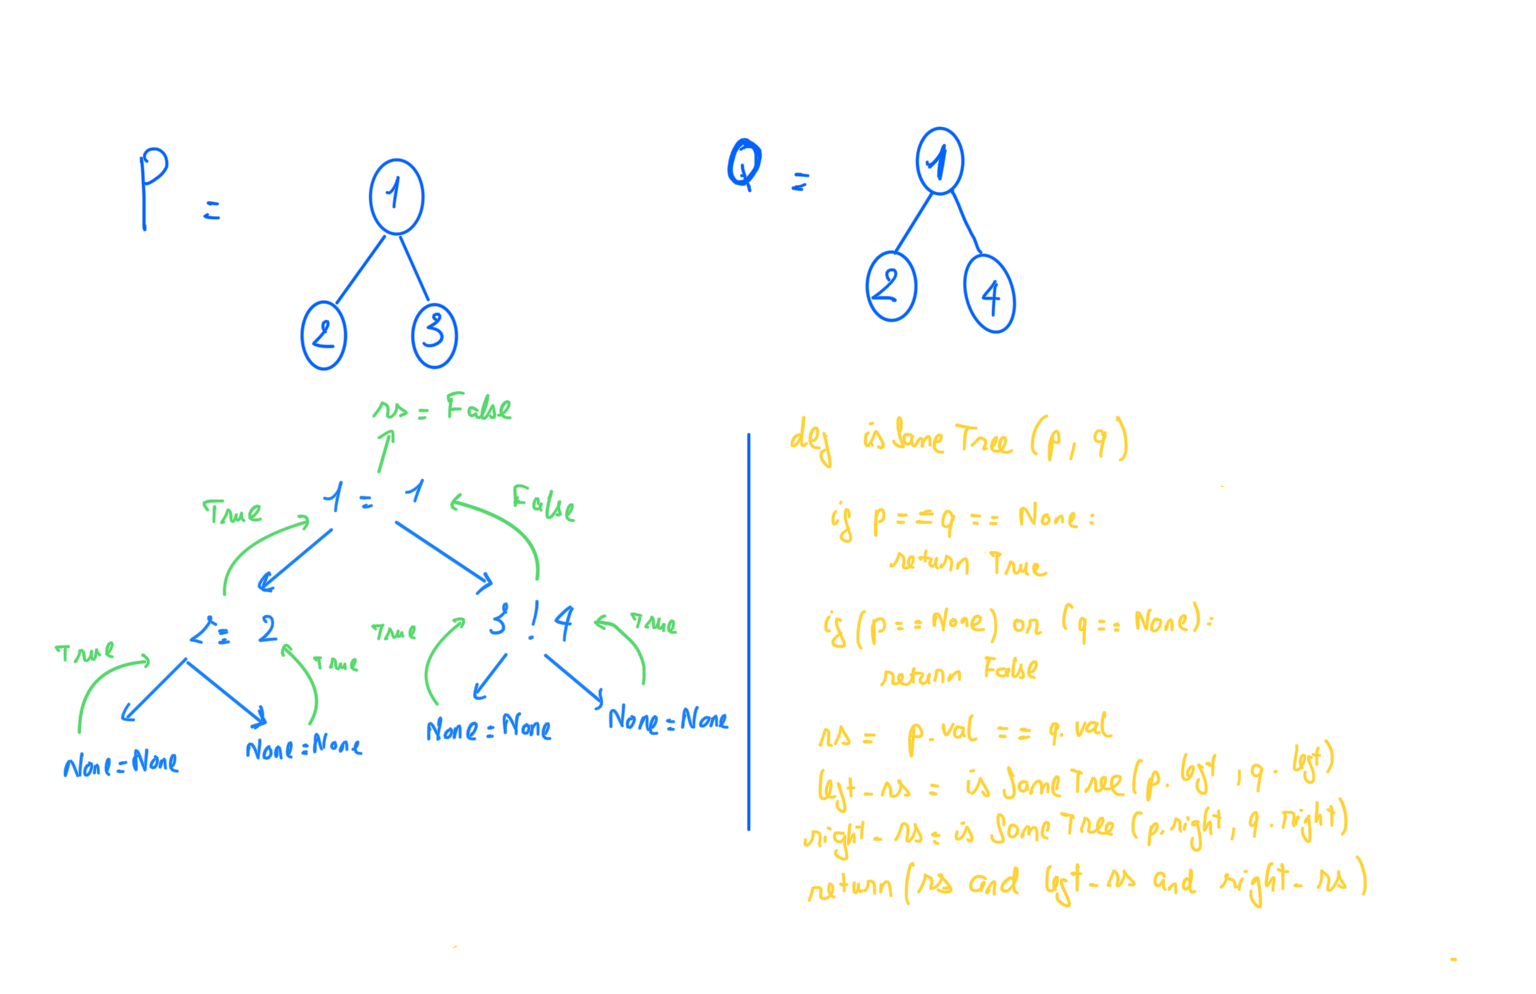 P =
1
2 3
Q =
1
2 4
rs = False
True 1 = 1 False
True 2 = 2 True
True 3 ! 4 True
None = None
None = None
None = None
None = None
def isSameTree (p, q)
if p == q == None :
return True
if (p == None) or (q == None) :
return False
rs = p.val == q.val
left_rs = isSameTree (p.left, q.left)
right_rs = isSameTree (p.right, q.right)
return (rs and left_rs and right_rs)